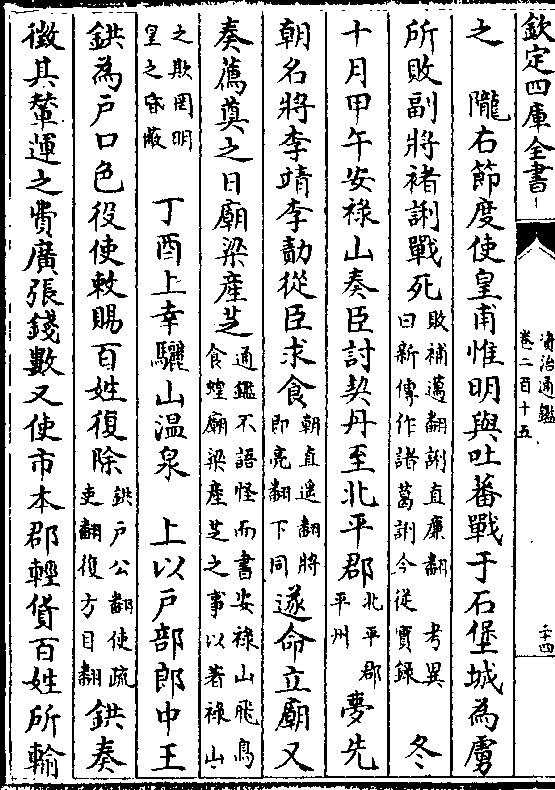 欽定四庫全書
資治通鑑
卷二百十五
二十四
之　隴右節度使皇甫惟明與吐蕃戰于石堡城為虜
所敗副將褚誗戰死敗補邁翻誗直廉翻　考異
曰新傳作諸葛誗今從實録　冬
十月甲午安禄山奏臣討契丹至北平郡北平郡
平州夢先
朝名將李靖李勣從臣求食朝直遥翻將
即亮翻下同遂命立廟又
奏薦奠之日廟梁産芝通鑑不語怪而書安禄山飛鳥
食蝗廟梁産芝之事以著禄山
之欺罔明
皇之昏蔽　丁酉上幸驪山温泉　上以戶部郎中王
鉷為戶口色役使敕賜百姓復除鉷戶公翻使疏
吏翻復方目翻鉷奏
徵其輦運之費廣張錢數又使市本郡輕貨百姓所輸